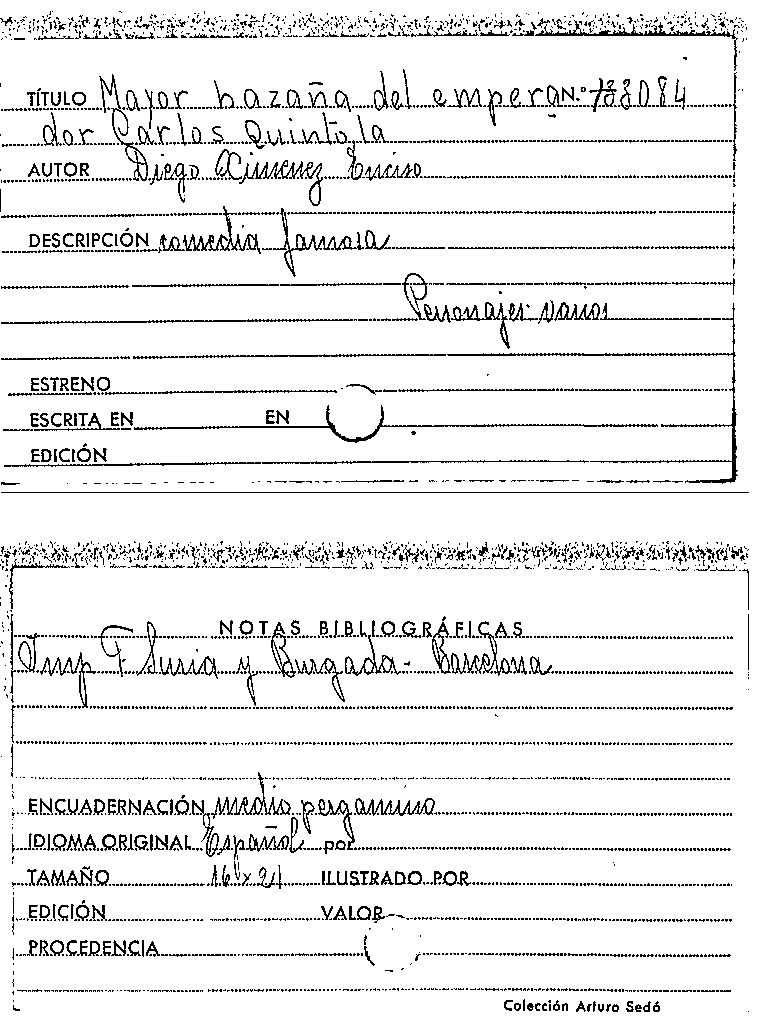 TÍTULO Mayor hazaña del empera N.º 133084
dor Carlos Quinto, la
AUTOR Diego Ximenez Enciso
DESCRIPCIÓN comedia famosa
Personajes: varios
ESTRENO
ESCRITA EN EN
EDICIÓN
NOTAS BIBLIOGRÁFICAS
Imp F Suria y Burgada - Barcelona
ENCUADERNACIÓN medio pergamino
IDIOMA ORIGINAL Español por
TAMAÑO 16 x 21 ILUSTRADO POR
EDICIÓN VALOR
PROCEDENCIA
Colección Arturo Sedó